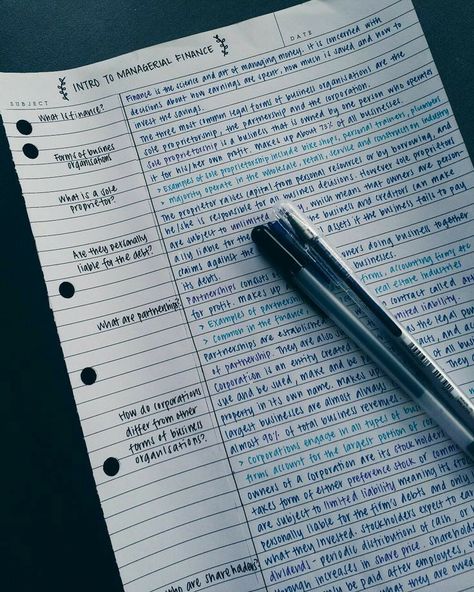 INTRO TO MANAGERIAL FINANCE
SUBJECT
DATE
What is finance?
Forms of busines organisations
What is a sole proprietor?
Are they personally liable for the debt?
What are partnerships?
How do corporations differ from other forms of business organisations?
who are share
Finance is the science and art of managing money. It is concerned with
decisions about how earnings are spent, how much is saved and how to
invest the savings.
The three most common legal forms of business organisations are the
sole proprietorship, the partnership and the corporation.
Sole proprietorship is a business that is owned by one person who operates
it for his/her own profit. makes up about 75% of all businesses.
> Examples of sole proprietorship include bike shops, personal trainers, plumbers
> majority operate in the wholesale, retail, service and construction industry
The proprietor raises capital from personal resources or by borrowing, and
he/she is responsible for all business decisions. However sole proprietors
are subject to unlimited which means that owners are person-
ally liable for the the business and creditors can make
claims against the assets if the business fails to pay
its debts.
Partnerships consists owners doing business together
for profit. makes up businesses.
> Examples of partnership firms, accounting firms etc
> Common in the finance real estate industries
Partnerships are established contract called
of partnership. They are also limited liability.
Corporation is an entity created the legal
sue and be sued, make and be
property in its own name. makes up
largest businesses are almost always
almost 90% of total business revenues.
> corporations engage in all types of
firms account for the largest portion of
owners of a corporation are its stockholders
takes form of either preference stock or
are subject to limited liability meaning its
personally liable for the firm's debts and only
what they invested. Stockholders expect to
dividends - periodic distributions of cash, or
through increases in share price. Shareholders
only be paid after employees,
what they are owed